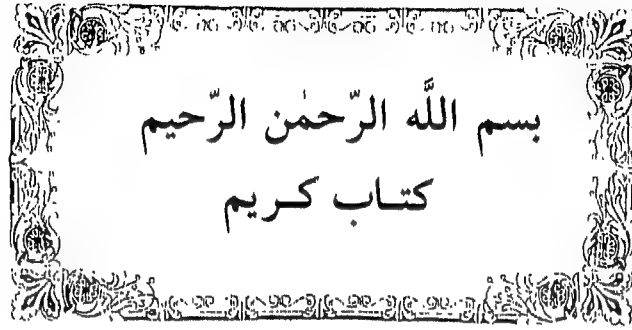 بسم اللَّه الرّحمٰن الرّحيم
كتاب كريم